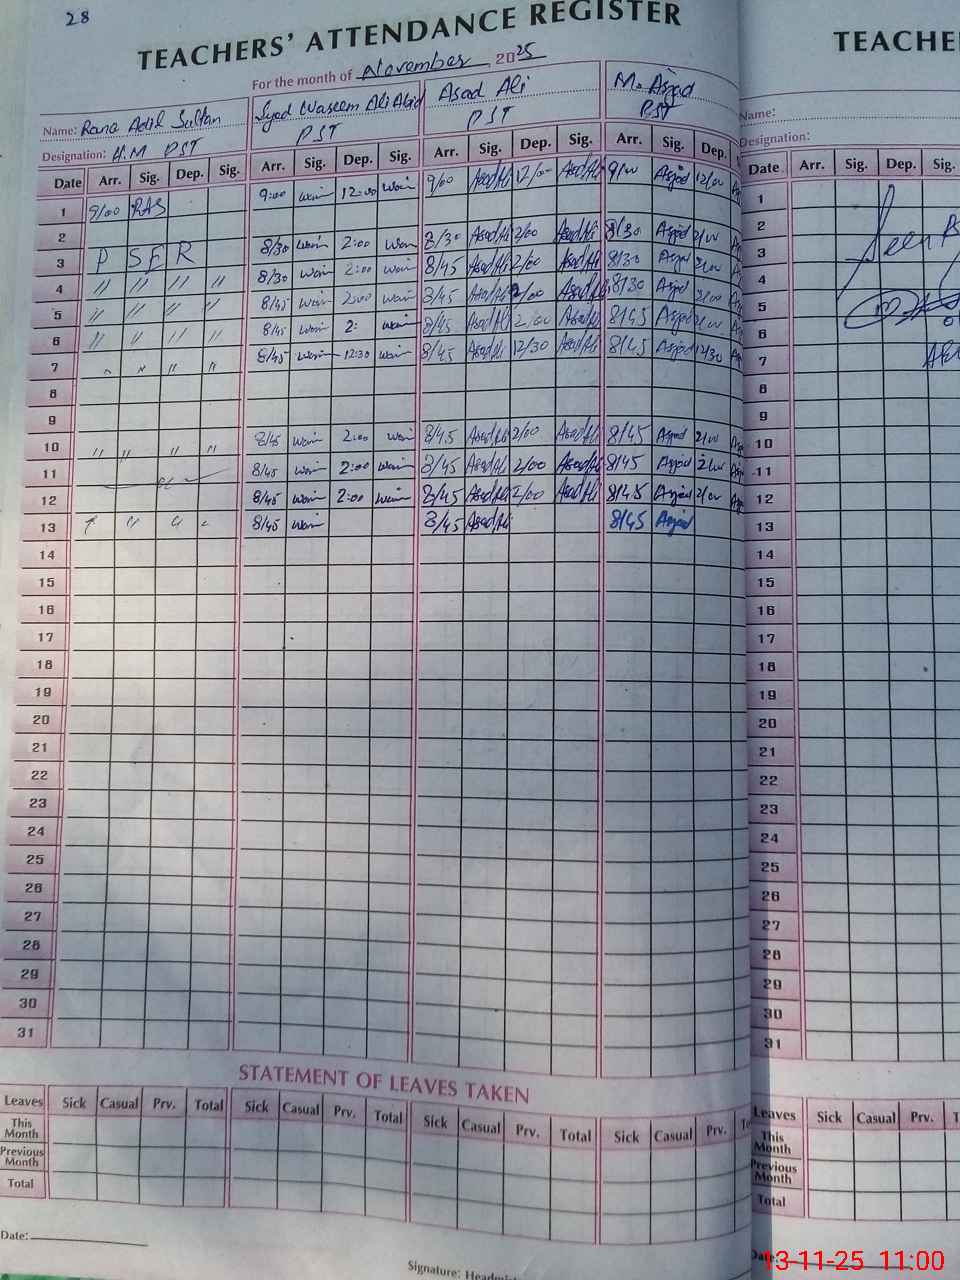 28
TEACHERS' ATTENDANCE REGISTER
For the month of November 2025
Name: Rana Adil Sultan
Syed Waseem Ali Abid
Asad Ali
M. Asjad
Designation: H.M PST
PST
PST
PST
Date Arr. Sig. Dep. Sig. Arr. Sig. Dep. Sig. Arr. Sig. Dep. Sig. Arr. Sig. Dep.
1 9/00 RAS 9:00 12:00 9/00 Asad Ali 12/00 Asad Ali 9/00 Asjad 12/00
2
3 P S E R 8/30 2:00 8/30 Asad Ali 2/00 Asad Ali 8/30 Asjad 2/00
4 " " " " 8/30 2:00 8/45 Asad Ali 2/00 Asad Ali 8/30 Asjad 2/00
5 " " " " 8/45 2:00 8/45 Asad Ali 2/00 Asad Ali 8/30 Asjad 2/00
6 " " " " 8/45 2: 8/45 Asad Ali 2/00 Asad Ali 8/45 Asjad 2/00
7 " " " " 8/45 12:30 8/45 Asad Ali 12/30 Asad Ali 8/45 Asjad 12/30
8
9
10 " " " " 8/45 2:00 8/45 Asad Ali 2/00 Asad Ali 8/45 Asjad 2/00
11 8/45 2:00 8/45 Asad Ali 2/00 Asad Ali 8/45 Asjad 2/00
12 8/45 2:00 8/45 Asad Ali 2/00 Asad Ali 8/45 Asjad 2/00
13 " " " 8/45 8/45 Asad Ali 8/45 Asjad
14
15
16
17
18
19
20
21
22
23
24
25
26
27
28
29
30
31
STATEMENT OF LEAVES TAKEN
Leaves Sick Casual Prv. Total Sick Casual Prv. Total Sick Casual Prv. Total Sick Casual Prv.
This Month
Previous Month
Total
Date:
Signature:
TEACHE
Name:
Designation:
Date Arr. Sig. Dep. Sig.
1
2
3 Seen
4
5
6
7
8
9
10
11
12
13
14
15
16
17
18
19
20
21
22
23
24
25
26
27
28
29
30
31
Leaves Sick Casual Prv.
This Month
Previous Month
Total
Date:
13-11-25 11:00